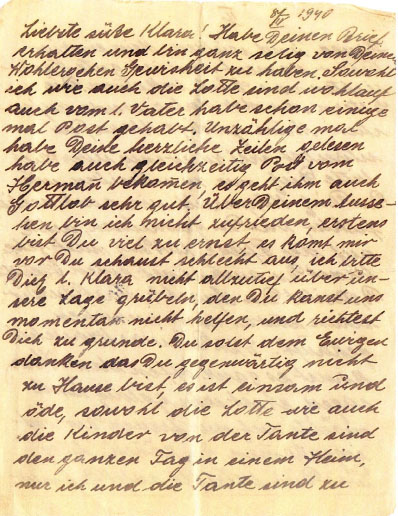 8/V 1940
Liebste süße Klara! Habe Deinen Brief
erhalten und bin ganz selig von Deinem
Wohlergehen Gewisheit zu haben. Sowohl
ich wie auch die Lotte sind wohlauf
auch vom l. Vater habe schon einige
mal Post gehabt. Unzählige mal
habe Deine herzliche Zeilen gelesen
habe auch gleichzeitig Post vom
Herman̄ bekom̄en, es geht ihm auch
Gottlob sehr gut. Über Deinem Ausse-
hen bin ich nicht zufrieden, erstens
bist Du viel zu ernst, es kom̄t mir
vor Du schaust schlecht aus, ich bitte
Dich l. Klara nicht allzutief über un-
sere Lage grübeln, den Du kanst uns
momentan nicht helfen, und richtest
Dich zu grunde. Du solst dem Ewigen
danken das Du gegenwärtig nicht
zu Hause bist, es ist einsam und
öde, sowohl die Lotte wie auch
die Kinder von der Tante sind
den ganzen Tag in einem Heim,
nur ich und die Tante sind zu